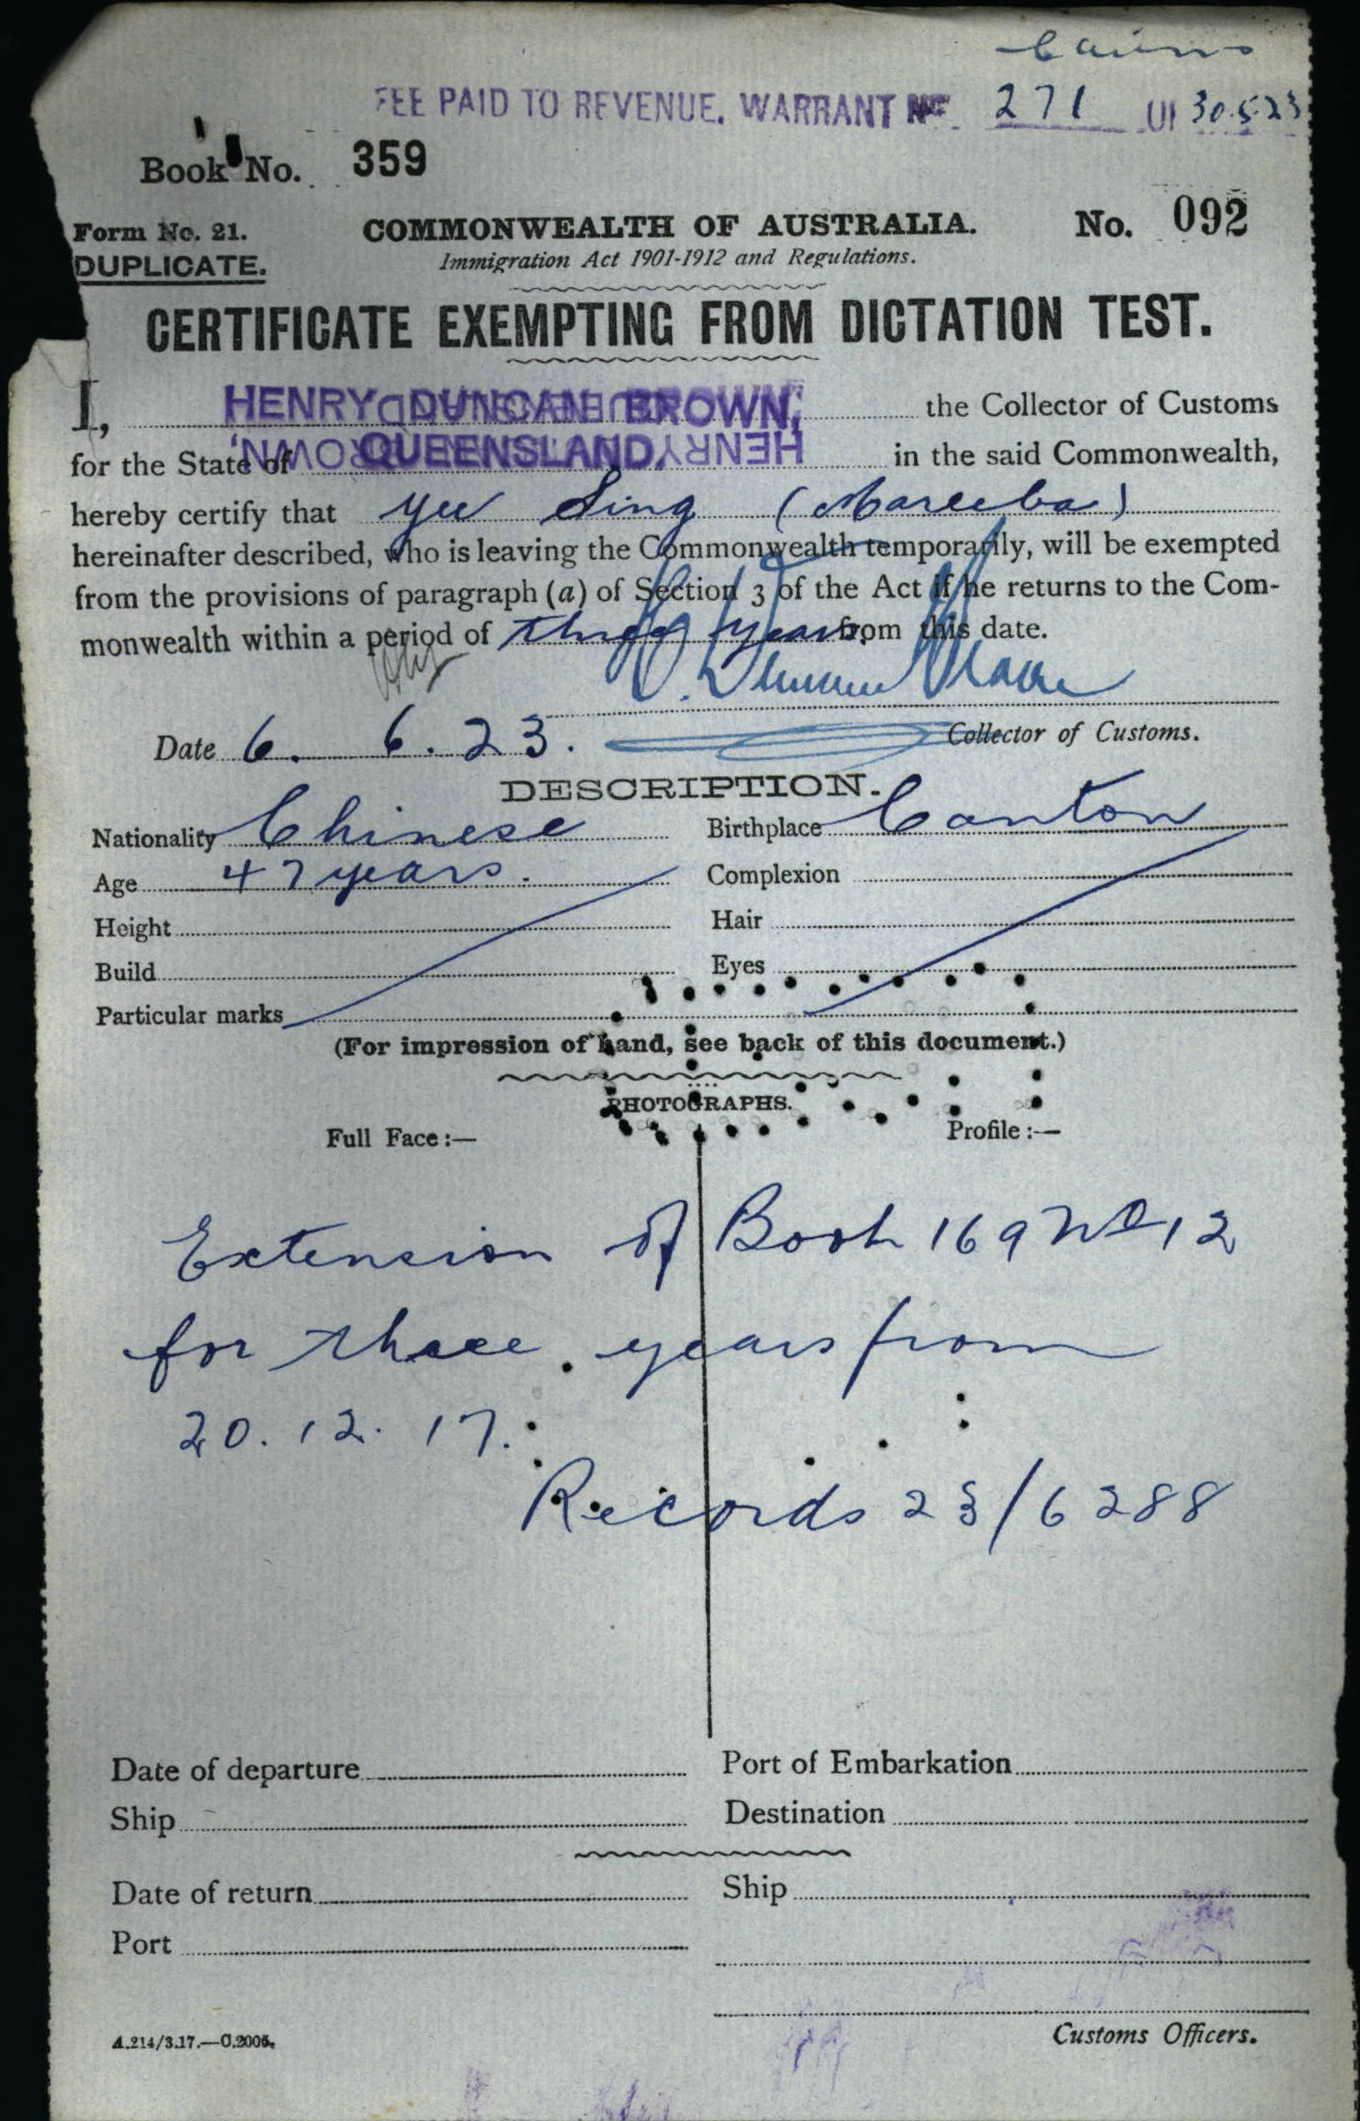 Cairns
FEE PAID TO REVENUE. WARRANT No. 271 OF 30.5.23
Book No. 359
Form No. 21. COMMONWEALTH OF AUSTRALIA. No. 092
DUPLICATE. Immigration Act 1901-1912 and Regulations.
CERTIFICATE EXEMPTING FROM DICTATION TEST.
I, HENRY DUNCAN BROWN, the Collector of Customs
for the State of QUEENSLAND, in the said Commonwealth,
hereby certify that Yee Sing (Mareeba)
hereinafter described, who is leaving the Commonwealth temporarily, will be exempted
from the provisions of paragraph (a) of Section 3 of the Act if he returns to the Com-
monwealth within a period of three years from this date.
Date 6. 6. 23. Collector of Customs.
DESCRIPTION.
Nationality Chinese Birthplace Canton
Age 47 years. Complexion
Height Hair
Build Eyes
Particular marks
(For impression of hand, see back of this document.)
PHOTOGRAPHS.
Full Face:— Profile:—
Extension of Book 169 No 12
for three years from
20.12.17.
Records 23/6288
Date of departure Port of Embarkation
Ship Destination
Date of return Ship
Port
A.214/3.17.—C.2005. Customs Officers.